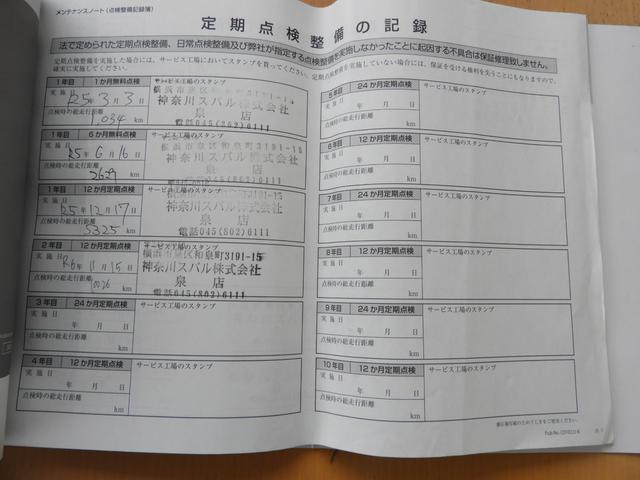 メンテナンスノート(点検整備記録簿)
定期点検整備の記録
法で定められた定期点検整備、日常点検整備及び弊社が指定する点検整備を実施しなかったことに起因する不具合は保証修理致しません。
定期点検整備を実施した場合には、サービス工場においてスタンプを貰ってください。定期点検整備を実施していない場合には、保証を受ける権利を失うことにもなりますので、
確実に実施してください。
1年目 1か月無料点検 サービス工場のスタンプ
実施日
R5年3月3日
点検時の総走行距離
1,034 km
横浜市泉区和泉町3191-15
神奈川スバル株式会社
泉店
電話045(802)6111
1年目 6か月無料点検 サービス工場のスタンプ
実施日
R5年6月16日
点検時の総走行距離
km
横浜市泉区和泉町3191-15
神奈川スバル株式会社
泉店
電話045(802)6111
1年目 12か月定期点検 サービス工場のスタンプ
実施日
R5年12月17日
点検時の総走行距離
5325 km
横浜市泉区和泉町3191-15
神奈川スバル株式会社
泉店
電話045(802)6111
2年目 12か月定期点検 サービス工場のスタンプ
実施日
R6年11月15日
点検時の総走行距離
km
横浜市泉区和泉町3191-15
神奈川スバル株式会社
泉店
電話045(802)6111
3年目 24か月定期点検 サービス工場のスタンプ
実施日
年 月 日
点検時の総走行距離
km
4年目 12か月定期点検 サービス工場のスタンプ
実施日
年 月 日
点検時の総走行距離
km
5年目 24か月定期点検 サービス工場のスタンプ
実施日
年 月 日
点検時の総走行距離
km
6年目 12か月定期点検 サービス工場のスタンプ
実施日
年 月 日
点検時の総走行距離
km
7年目 24か月定期点検 サービス工場のスタンプ
実施日
年 月 日
点検時の総走行距離
km
8年目 12か月定期点検 サービス工場のスタンプ
実施日
年 月 日
点検時の総走行距離
km
9年目 24か月定期点検 サービス工場のスタンプ
実施日
年 月 日
点検時の総走行距離
km
10年目 12か月定期点検 サービス工場のスタンプ
実施日
年 月 日
点検時の総走行距離
km